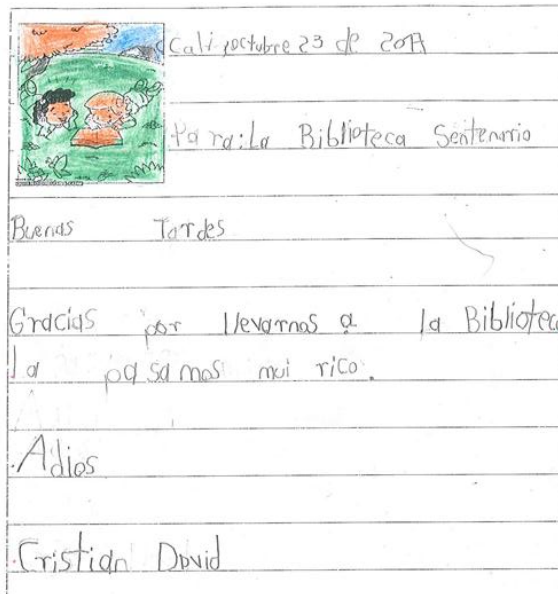 Cali, octubre 23 de 2017
Para: La Biblioteca Sentenario
Buenas Tardes
Gracias por llevarnos a la Biblioteca
la pasamos mui rico.
Adios
Cristian David